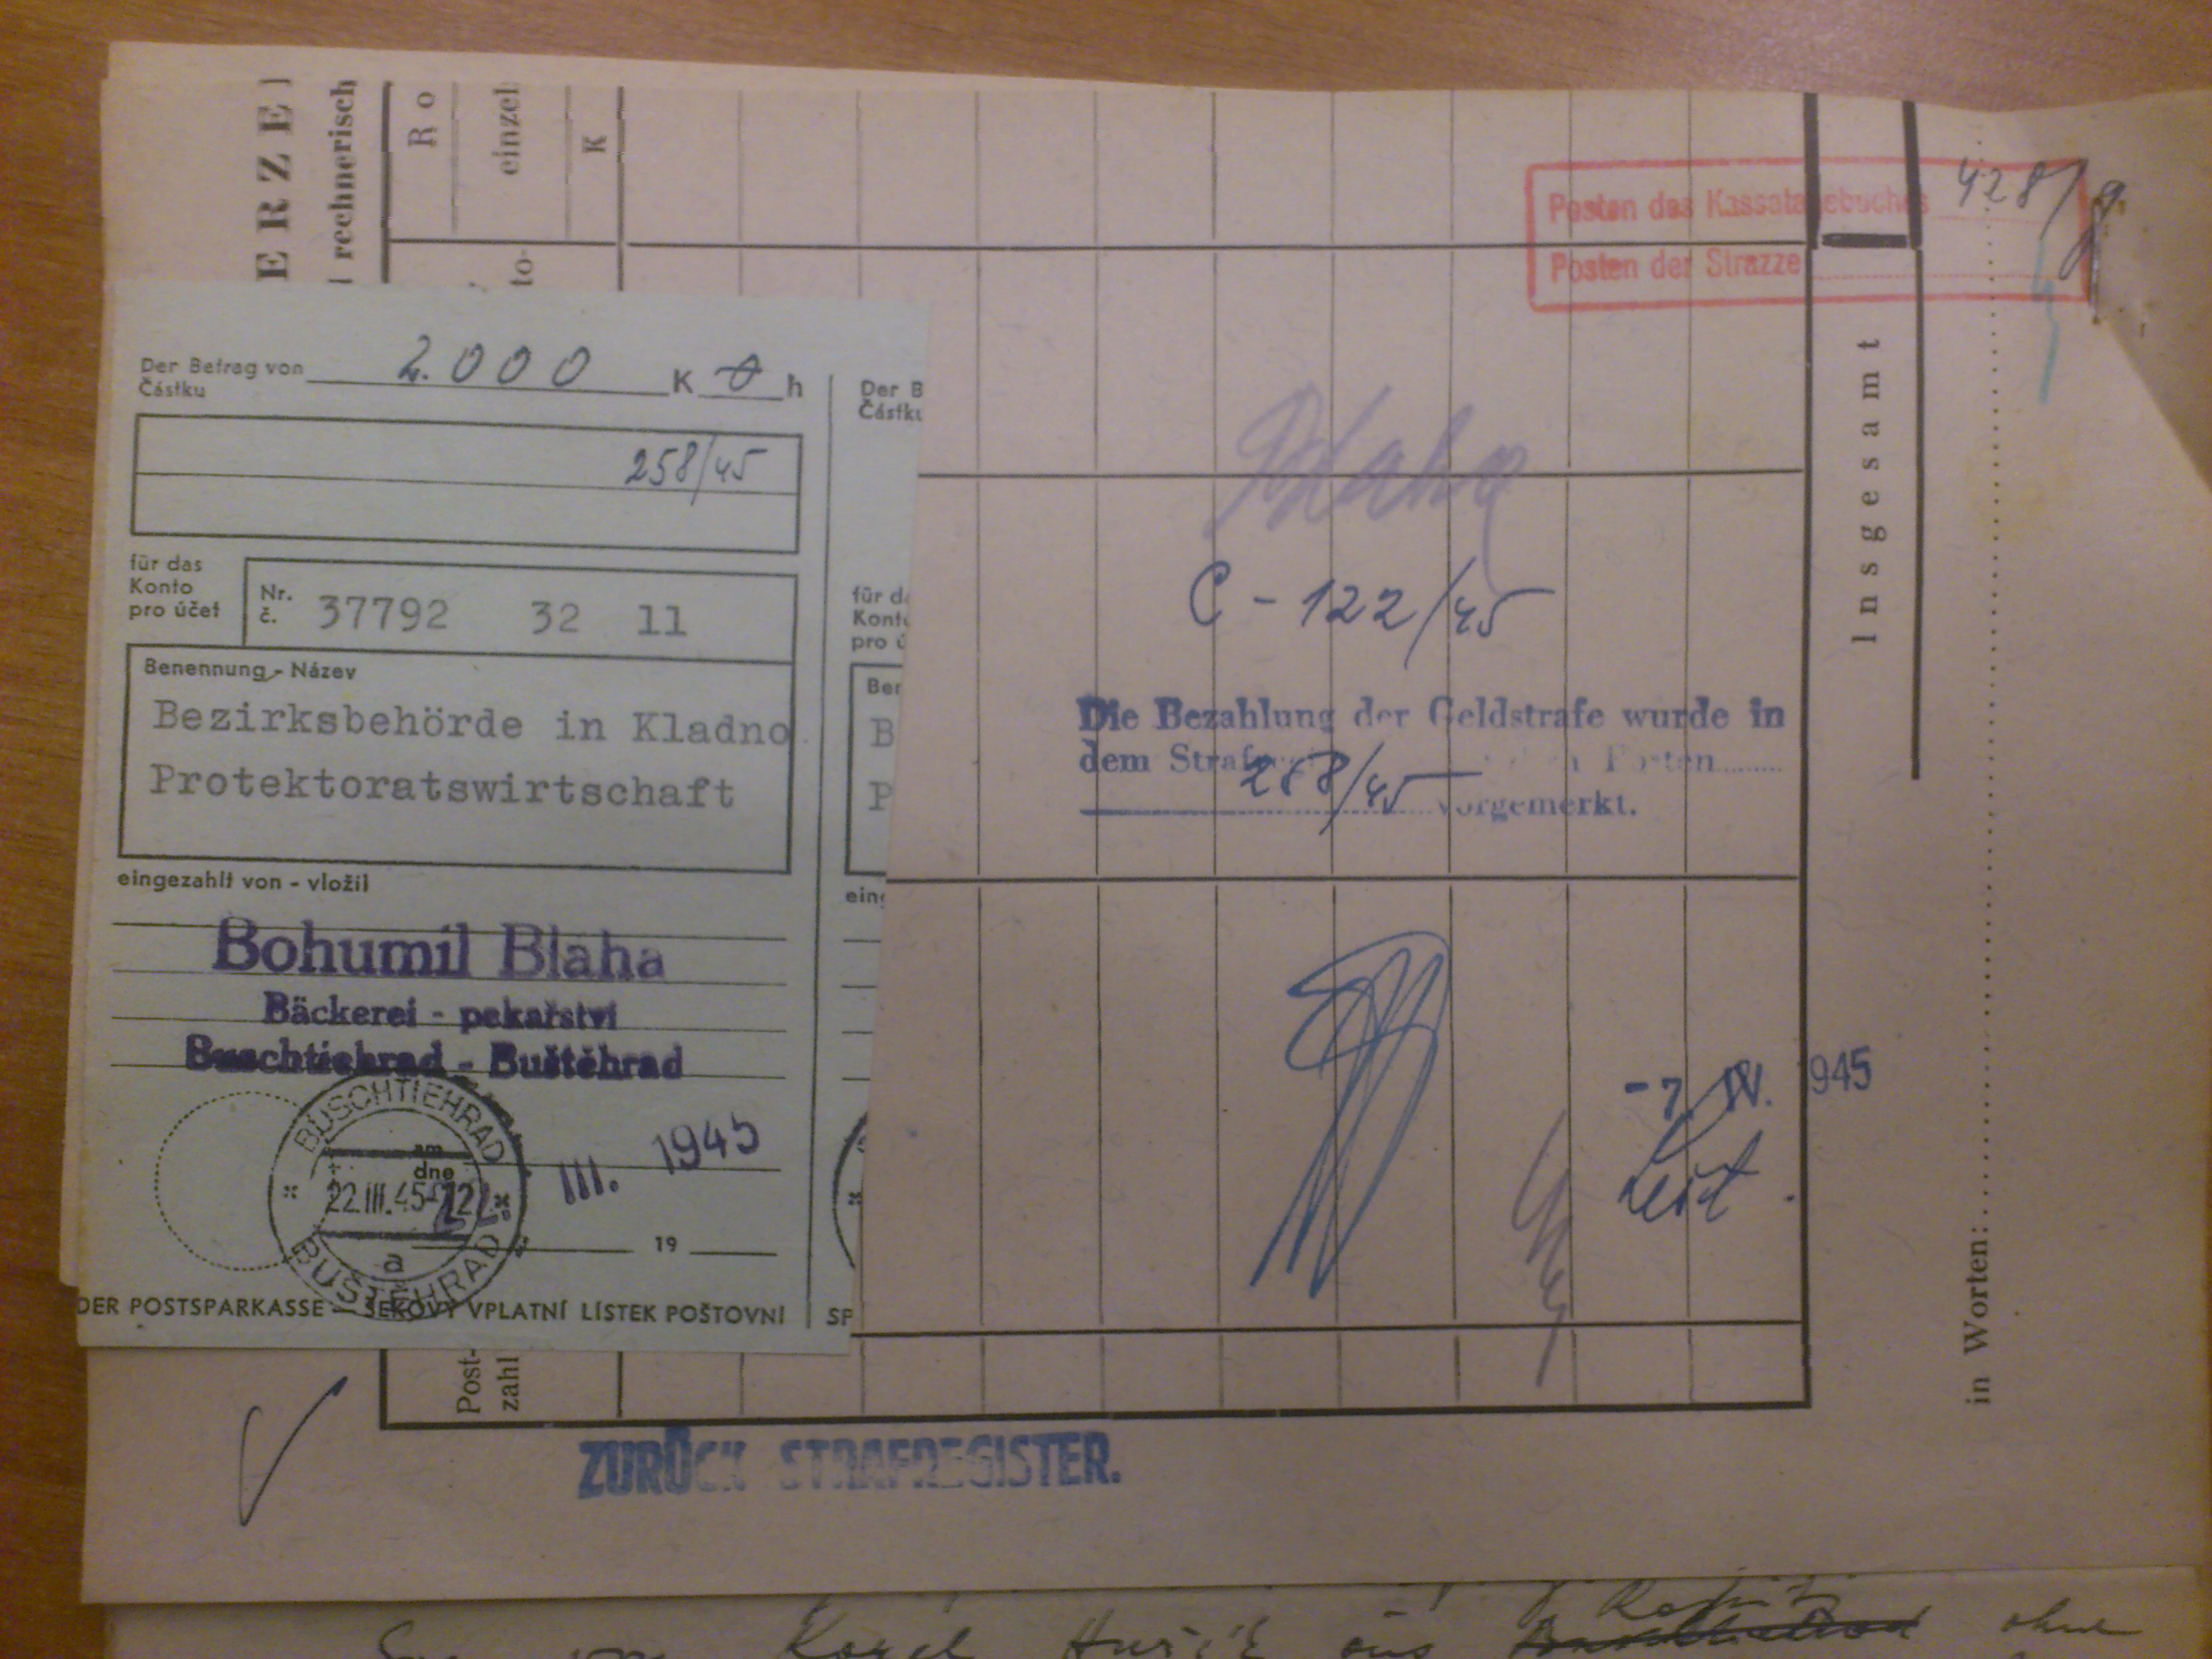 ERZE
rechnerisch
Ro
einzel
K
to-
Posten des Kassatagebuches 428/
Posten der Strazze
Insgesamt
in Worten:
Der Betrag von 2.000 K 0 h
Částku
258/45
für das
Konto
pro účet
Nr.
č. 37792 32 11
Benennung - Název
Bezirksbehörde in Kladno
Protektoratswirtschaft
eingezahlt von - vložil
Bohumil Blaha
Bäckerei - pekařství
Buschtiehrad - Buštěhrad
BUSCHTIEHRAD
am
dne
22.III.45-12
22. III. 1945
a
BUŠTĚHRAD
19
DER POSTSPARKASSE - ŠEKOVÝ VPLATNÍ LÍSTEK POŠTOVNÍ
Der B
Částku
für da
Konto
pro ú
Ben
B
P
eing
SP
Blaha
C - 122/45
Die Bezahlung der Geldstrafe wurde in
dem Posten
258/45 vorgemerkt.
-7. IV. 1945
Post-
zahl
ZURÜCK STRAFREGISTER.
Karel aus ohne